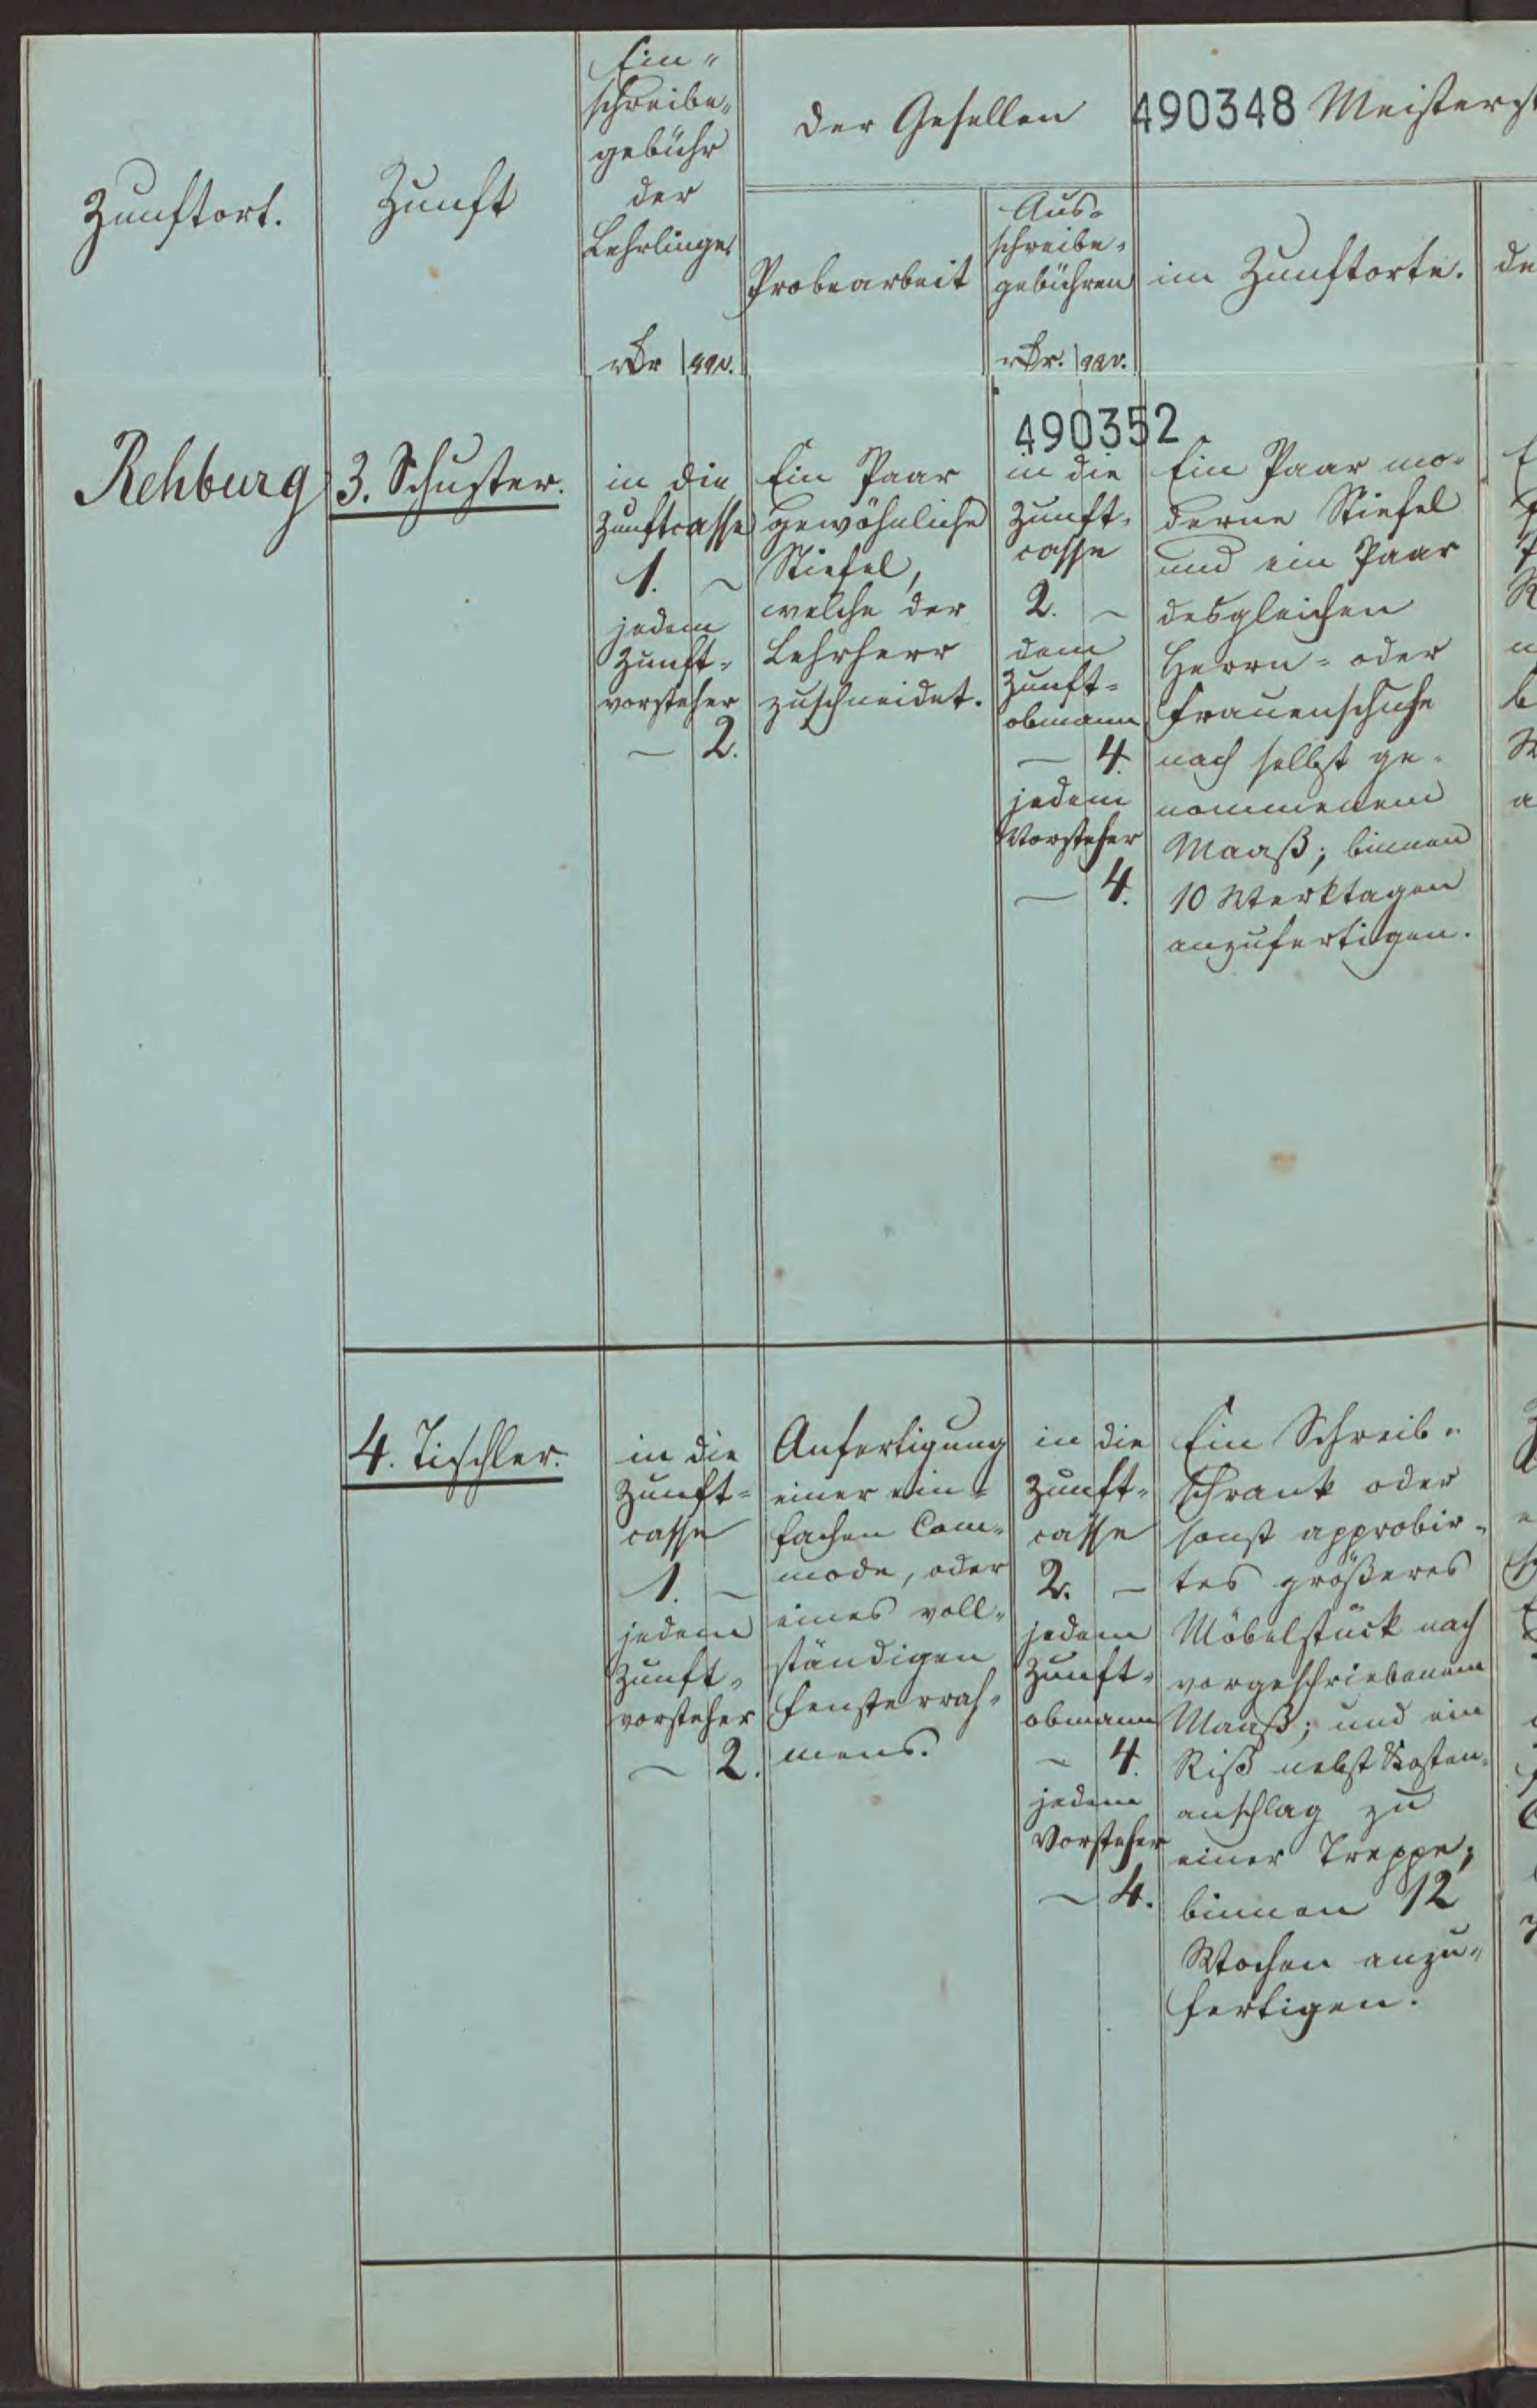 Zunftort.
Zunft
Ein-
schreibe-
gebühr
der
Lehrlinge
der Gesellen
490348
Meisterst
Probearbeit
Aus-
schreibe-
gebühren
im Zunftorte.
de
Rehburg
3. Schuster.
in die
Zunftcasse
1. –
jedem
Zunft-
vorsteher
– 2.
Ein Paar
gewöhnliche
Stiefel,
welche der
Lehrherr
zuschneidet.
490352
in die
Zunft-
casse
2. –
dem
Zunft-
obmann
– 4.
jedem
Vorsteher
– 4.
Ein Paar mo-
derne Stiefel
und ein Paar
desgleichen
Herrn- oder
Frauenschuhe
nach selbst ge-
nommenem
Maaß; binnen
10 Werktagen
anzufertigen.
4. Tischler.
in die
Zunft-
casse
1. –
jedem
Zunft-
vorsteher
– 2.
Anfertigung
einer ein-
fachen Com-
mode, oder
eines voll-
ständigen
Fensterrah-
mens.
in die
Zunft-
casse
2. –
jedem
Zunft-
obmann
– 4.
jedem
Vorsteher
– 4.
Ein Schreib-
schrank oder
sonst approbir-
tes größeres
Möbelstück nach
vorgeschriebenem
Maaß; und ein
Riß nebst Kosten-
anschlag zu
einer Treppe;
binnen 12
Wochen anzu-
fertigen.